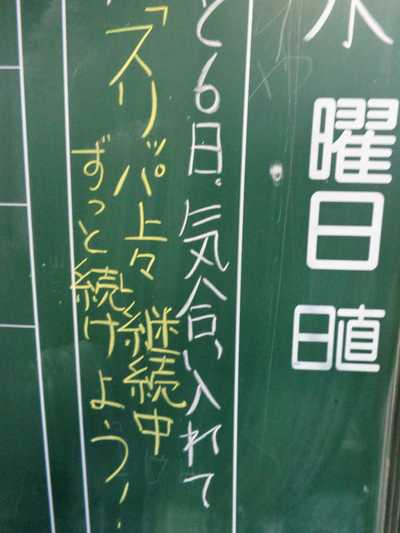 水曜日
日直
と6日。気合い入れて
「スリッパ上々」継続中
ずっと続けよう!